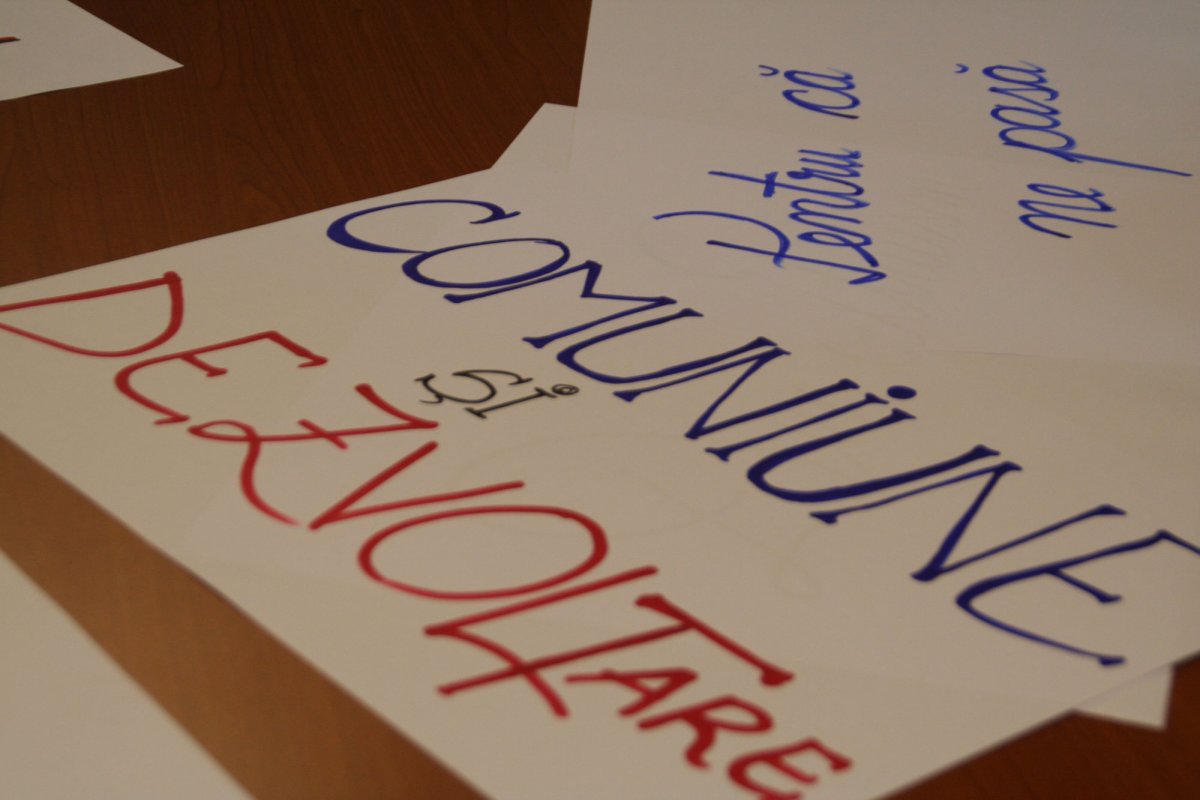 COMUNIUNE
ȘI
DEZVOLTARE
Pentru că
ne pasă